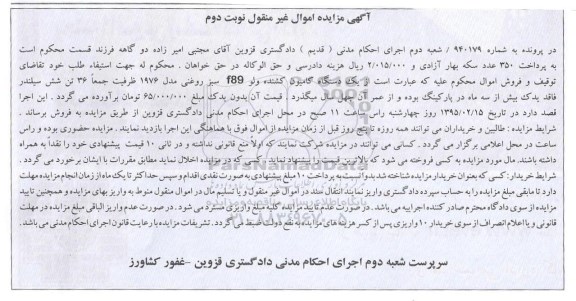 آگهی مزایده اموال غیر منقول نوبت دوم
در پرونده به شماره ۹۴۰۱۷۹ / شعبه دوم اجرای احکام مدنی ( قدیم ) دادگستری قزوین آقای مجتبی امیر زاده دو گاهه فرزند قسمت محکوم است
به پرداخت ۳۵۰ عدد سکه بهار آزادی و ۲/۰۱۵/۰۰۰ ریال هزینه دادرسی و حق الوکاله در حق خواهان . محکوم له جهت استیفاء طلب خود تقاضای
توقیف و فروش اموال محکوم علیه که عبارت است از یک دستگاه کامیون کشنده ولو f89 سبز روغنی مدل ۱۹۷۶ ظرفیت جمعاً ۳۶ تن شش سیلندر
فاقد یدک بیش از سه ماه در پارکینگ بوده و از عمر آن چهل سال میگذرد . قیمت آن بدون یدک مبلغ ۶۵/۰۰۰/۰۰۰ تومان برآورده می گردد . این اجرا
قصد دارد در تاریخ ۱۳۹۵/۰۲/۱۵ روز چهارشنبه راس ساعت ۱۱ صبح در محل اجرای احکام مدنی دادگستری قزوین از طریق مزایده به فروش برساند .
شرایط مزایده : طالبین و خریداران می توانند همه روزه تا پنج روز قبل از زمان مزایده از اموال فوق با هماهنگی این اجرا بازدید نمایند . مزایده حضوری بوده و راس
ساعت در محل اعلامی برگزار می گردد . کسانی می توانند در مزایده شرکت نمایند که اولاً منع قانونی نداشته و در ثانی ۱۰ قیمت پیشنهادی خود را نقداً به همراه
داشته باشند. مال مورد مزایده به کسی فروخته می شود که بالاترین قیمت را پیشنهاد نماید . کسی که در مزایده اخلال نماید مطابق مقررات با ایشان برخورد می گردد .
شرایط خریدار: کسی که بعنوان خریدار مزایده شناخته شد بدواً بایست به پرداخت ۱۰ مبلغ پیشنهادی به صورت نقدی اقدام و سپس حداکثر تا یک ماه از زمان انجام مزایده مهلت
دارد تا مابقی مبلغ مزایده را به حساب سپرده دادگستری واریز نمایند انتقال سند در اموال غیر منقول و یا تسلیم مال در اموال منقول منوط به واریز بهای مزایده و همچنین تایید
مزایده از سوی دادگاه محترم صادر کننده اجراییه می باشد . در صورت عدم تایید مزایده کلیه مبلغ واریزی مسترد می شود . در صورت عدم واریز الباقی مبلغ مزایده در مهلت
قانونی و یا اعلام انصراف از سوی خریدار ۱۰ واریزی پس از کسر هزینه های مزایده به نفع دولت ضبط می گردد . تشریفات مزایده با رعایت قانون اجرای احکام مدنی می باشد.
سرپرست شعبه دوم اجرای احکام مدنی دادگستری قزوین –غفور کشاورز